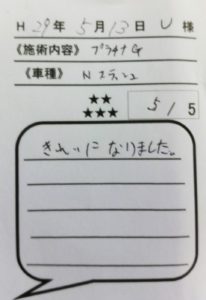 H 29年 5月 13日 U 様
《施術内容》 プラチナG
《車種》 Nスラッシュ
★★
★★★
5 / 5
きれいに なりました。